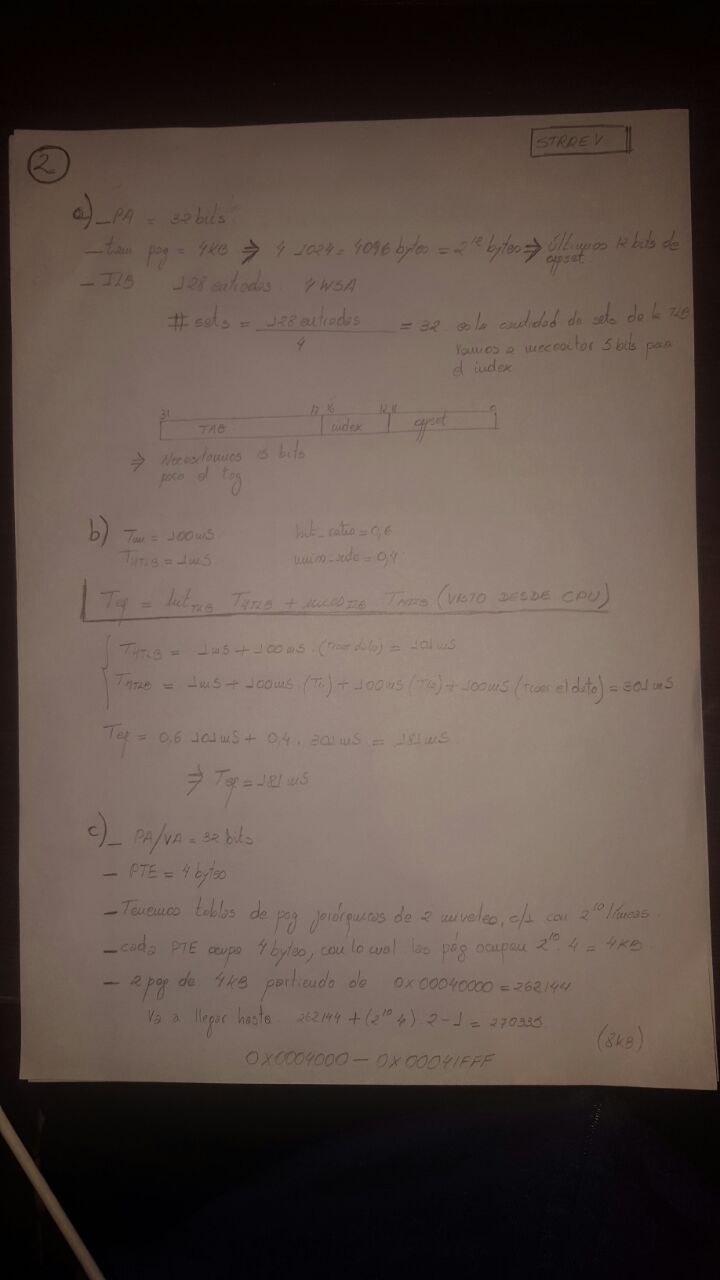 2.
STRREV
a) - PA = 32 bits.
- tam pag = 4KB ⇒ 4 1024 = 4096 bytes = 2^12 bytes ⇒ Últimos 12 bits de
offset.
- TLB 128 entradas. 4 WSA
# sets = 128 entradas / 4 = 32 es la cantidad de sets de la TLB
Vamos a necesitar 5 bits para
el index
31 17 16 12 11 0
TAG index offset
⇒ Necesitamos 15 bits
para el tag
b) Tm = 100mS hit_ratio = 0,6
THTLB = 1mS = 0,4
Tef = hitTLB THTLB + missTLB . TMTLB (VISTO DESDE CPU)
THTLB = 1mS + 100mS (traer dato) = 101mS
TMTLB = 1mS + 100mS + 100mS + 100mS (traer el dato) = 301mS
Tef = 0,6 101mS + 0,4 . 301mS = 181mS
⇒ Tef = 181mS
c) - PA/VA = 32 bits
- PTE = 4 bytes
- Tenemos tablas de pag jerárquicas de 2 niveles, c/1 con 2^10 líneas.
- cada PTE ocupa 4 bytes, con lo cual las pág ocupan 2^10 . 4 = 4KB.
- 2 pag de 4KB partiendo de 0x00040000 = 262144
Va a llegar hasta 262144 + (2^10 4) . 2 - 1 = 270335
(8KB)
0x0004000 - 0x00041FFF